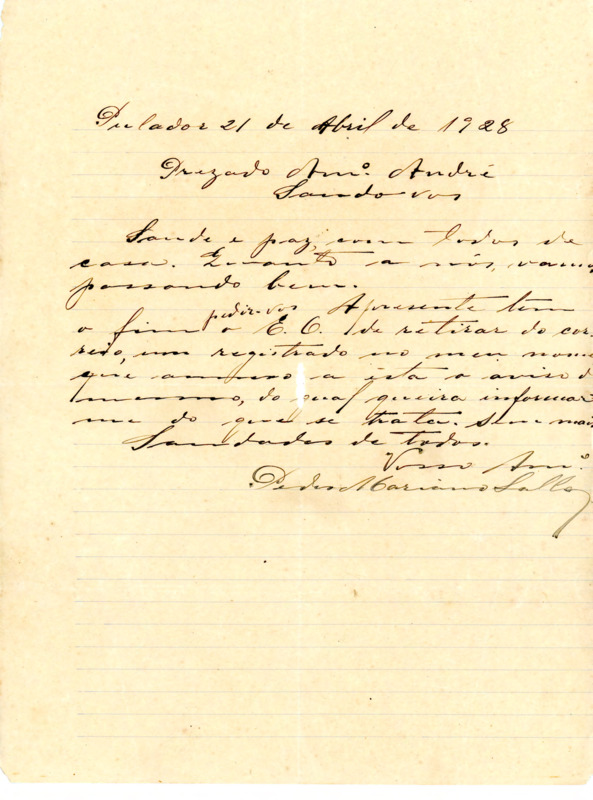 Pulador 21 de Abril de 1928
Prezado Amº. André
Saudo vos
Saude e paz, com todos de
casa. Quanto a nós, vamos
passando bem.
pedir-vos Apresente tem
o fim o E. C. de retirar do cor-
reio, um registrado no meu nome
que annexo a esta o aviso do
mesmo, do qual queira informar
me do que se trata. Sem mais
Saudades de todos.
Vosso Amº.
Pedro Mariano